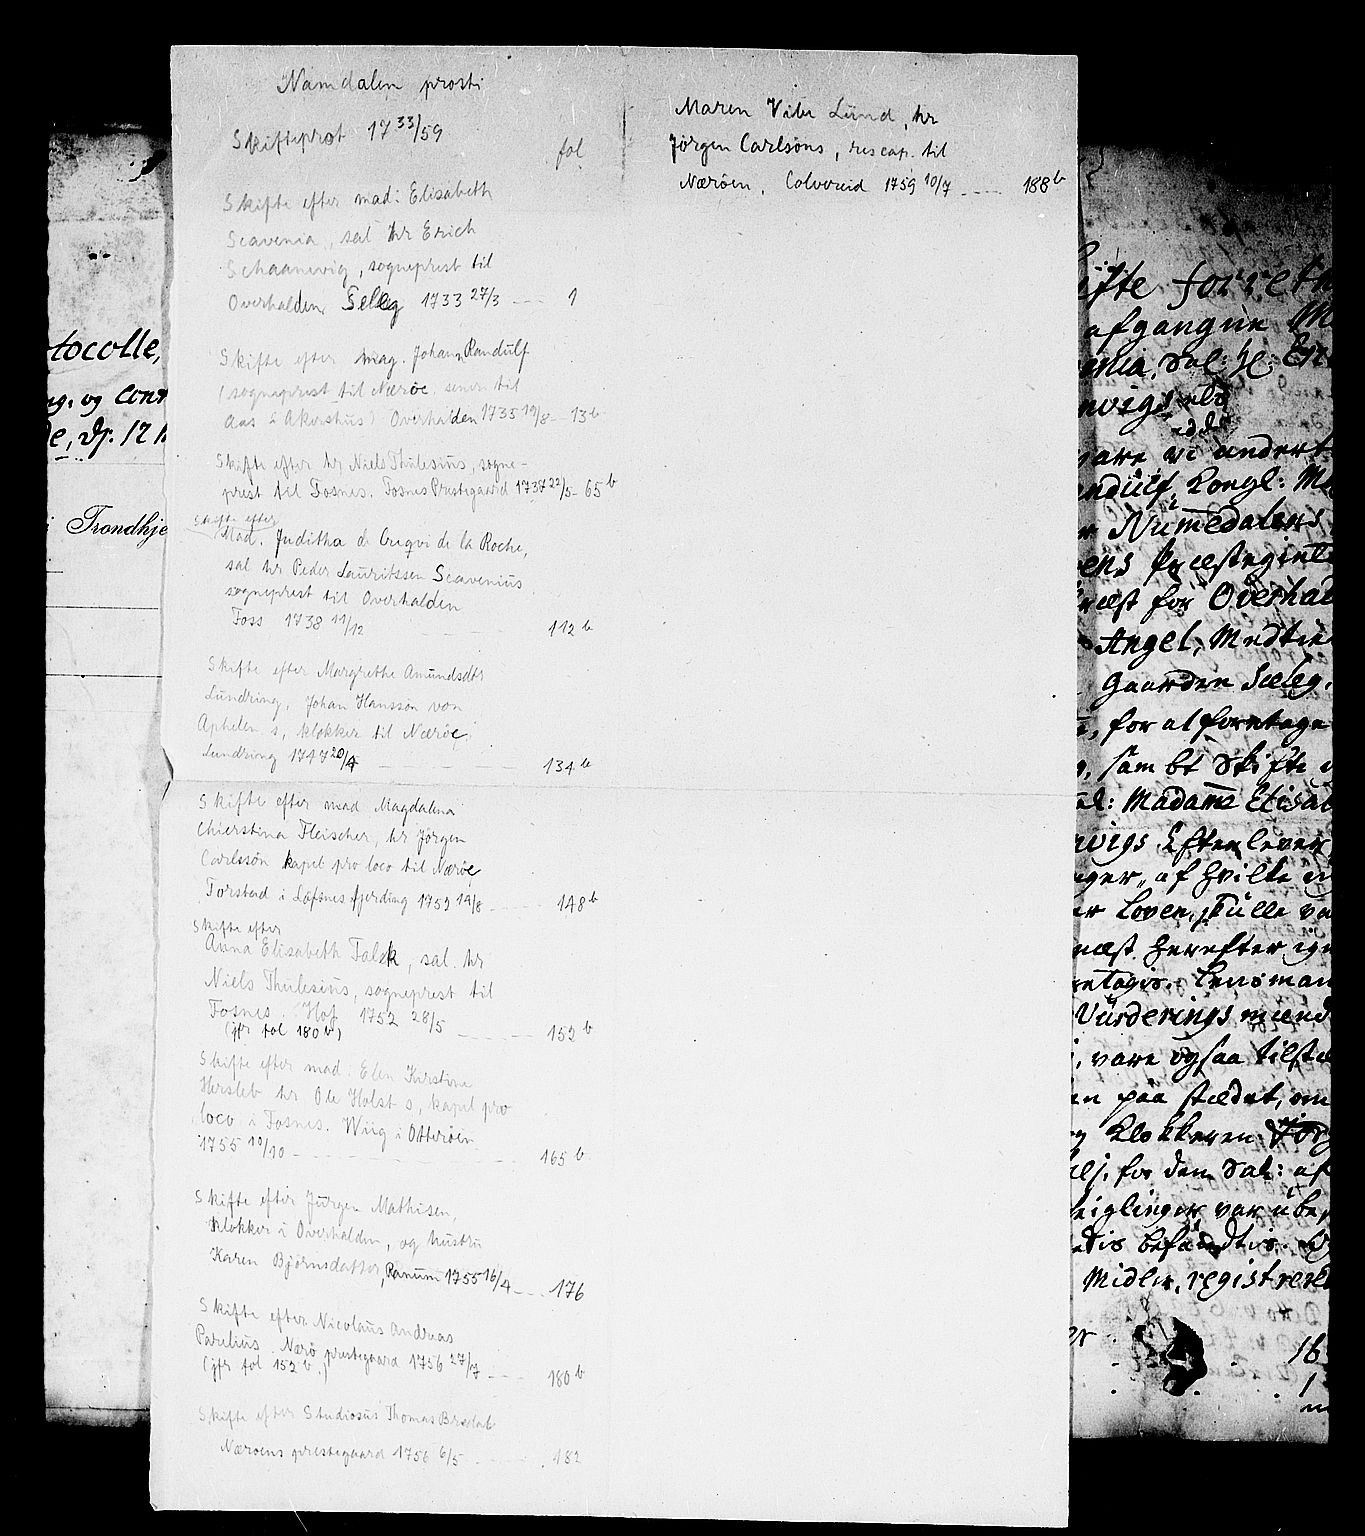 Namdalen prosti
Skifteprot 17 33/59
fol
Skifte efter mad: Elisabeth
Scavenia, sal hr Erich
Schaanevig, sogneprest til
Overhalden, Seleg 1733 27/3 --- 1
Skifte efter mag. Johan Randulf
(sogneprest til Nærøe senere til
Aas i Akershus) Overhalden 1735 19/8 - 13 b
Skifte efter hr Niels Thulesius, sogne-
prest til Fosnes. Fosnes Prestegaard 22/5 - 65 b
Skifte efter
Mad. Juditha de Crequi de la Roche,
sal hr Peder Lauritssen Scavenius
sogneprest til Overhalden
Foss 1738 11/12 --- 112 b
Skifte efter Margrethe Amundsdtr
Lundring, Johan Hansson von
Aphelen s, klokker til Nærøe,
Lundring 1747 20/4 --- 134 b
Skifte efter mad Magdalena
Chierstina Fleischer, hr Jørgen
Carlssøn kapel pro loco til Nærøe
Torstad i Løfsnes fjerding 1752 14/8 --- 148 b
Skifte efter
Anna Elisabeth Falck, sal. hr
Niels Thulesius, sogneprest til
Fosnes. Hof 1752 28/5 --- 152 b
(jfr fol 180 b)
Skifte efter mad: Elen Kirstine
Hersleb hr. Ole Holst s, kapel pro
loco i Fosnes. Wiig i Otterøen
1755 10/10 --- 165 b
Skifte efter Jürgen Mathisen,
klokker i Overhalden, og hustru
Karen Bjørnsdatter, Ranum 1755 16/4 --- 176
Skifte efter Nicolaus Andreas
Parelius. Nærø prestegaard 1756 27/7 --- 180 b
(jfr fol 152 b.)
Skifte efter Studiosus Thomas
Nærøens prestegaard 1756 6/5 --- 182
Maren Vibe Lund, hr
Jörgen Carlsöns, res cap. til
Næröen, Colvereid 1759 10/7 --- 188 b
tocolle,
og con
Trondhje
ifte forret
afgangne M
enia, Sal: H: Er
nvigs
vare vi
andulf, Kongl: M
Numedalens
Præstegi
ræst for Overhal
Angel, Medtie
Gaarden Sæleg,
, for at foretage
, samt Skifte
al: Madame Elisa
wigs Efterlever
af hvilke
Loven, skulle va
næst herefter
Lensman
Vurderings mænd
, vare ogsaa tilst
en paa stædet, om
Klokkeren Jörg
for den Sal: af
var
befandtis
Midler, registrere
16
1